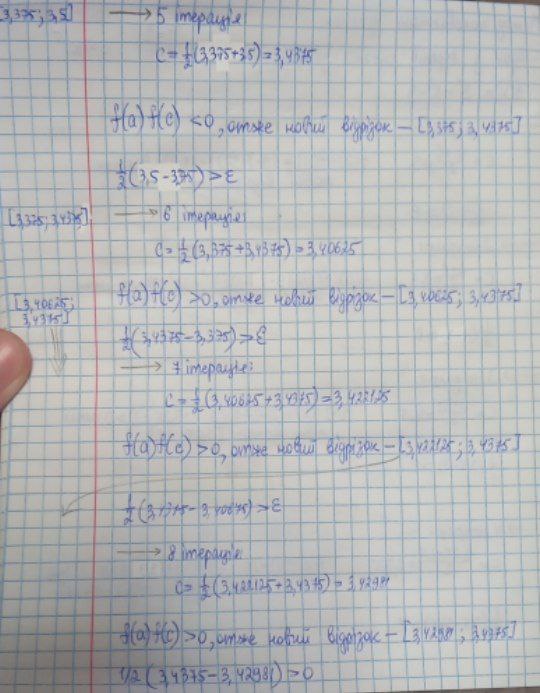 [3,375; 3,5] → 5 ітерація
C = ½(3,375+3,5) = 3,4375
f(a) f(c) < 0, отже новий відрізок — [3,375; 3,4375]
½(3,5 - 3,375) > ε
[3,375; 3,4375] → 6 ітерація:
C = ½(3,375+3,4375) = 3,40625
f(a) f(c) > 0, отже новий відрізок — [3,40625; 3,4375]
[3,40625;
3,4375]
½(3,4375 - 3,375) > ε
→ 7 ітерація:
C = ½(3,40625+3,4375) = 3,422125
f(a) f(c) > 0, отже новий відрізок — [3,422125; 3,4375]
½(3,4375 - 3,40625) > ε
→ 8 ітерація
C = ½(3,422125+3,4375) = 3,42981
f(a) f(c) > 0, отже новий відрізок — [3,42981; 3,4375]
1/2 (3,4375 - 3,42981) > 0